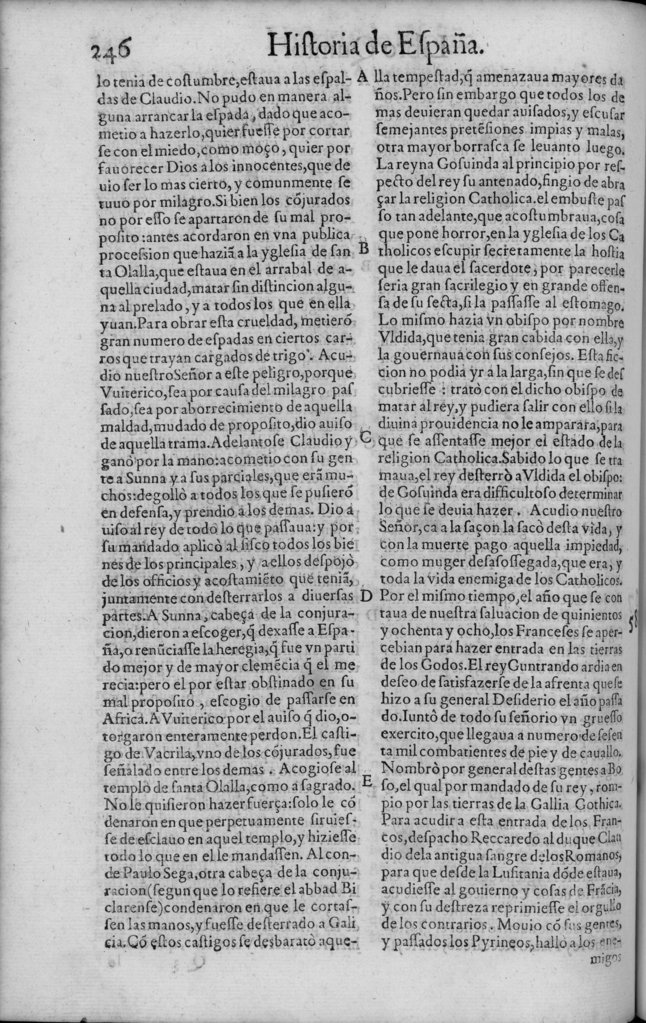 246
Hiſtoria de Eſpaña.
lo tenia de coſtumbre,eſtaua a las eſpal-
das de Claudio.No pudo en manera al-
guna arrancar la eſpada, dado que aco-
metio a hazerlo,quier fueſſe por cortar
ſe con el miedo,como moço, quier por
fauorecer Dios a los innocentes,que de
uio ſer lo mas cierto, y comunmente ſe
tuuo por milagro.Si bien los cójurados
no por eſſo ſe apartaron de ſu mal pro-
poſito:antes acordaron en vna publica
proceſsion que haziã a la ygleſia de ſan
ta Olalla,que eſtaua en el arrabal de a-
quella ciudad,matar ſin diſtincion algu-
na al prelado, y a todos los que en ella
yuan.Para obrar eſta crueldad, metierõ
gran numero de eſpadas en ciertos car-
ros que trayan cargados de trigo. Acu-
dio nueſtro Señor a eſte peligro,porque
Vuiterico,ſea por cauſa del milagro paſ
ſado,ſea por aborrecimiento de aquella
maldad,mudado de propoſito,dio auiſo
de aquella trama.Adelantoſe Claudio y
ganò por la mano:acometio con ſu gen
te a Sunna y a ſus parciales,que erã mu-
chos:degollò a todos los que ſe puſierõ
en defenſa,y prendio a los demas. Dio a
uiſo al rey de todo lo que paſſaua:y por
ſu mandado aplicò al fiſco todos los bie
nes de los principales, y a ellos deſpojò
de los officios y acoſtamiẽto que teniã,
juntamente con deſterrarlos a diuerſas
partes.A Sunna, cabeça de la conjura-
cion,dieron a eſcoger,q̃ dexaſſe a Eſpa-
ña,o renũciaſſe la heregia,q̃ fue vn parti
do mejor y de mayor clemẽcia q̃ el me
recia:pero el por eſtar obſtinado en ſu
mal propoſito, eſcogio de paſſarſe en
Africa.A Vuiterico por el auiſo q̃ dio,o-
torgaron enteramente perdon.El caſti-
go de Vacrila,vno de los cójurados,fue
ſeñalado entre los demas. Acogioſe al
templo de ſanta Olalla,como a ſagrado.
No le quiſieron hazer fuerça:ſolo le cõ
denaron en que perpetuamente ſiruieſ-
ſe de eſclauo en aquel templo,y hizieſſe
todo lo que en el le mandaſſen. Al con-
de Paulo Sega,otra cabeça de la conju-
racion(ſegun que lo refiere el abbad Bi
clarenſe)condenaron en que le cortaſ-
ſen las manos,y fueſſe deſterrado a Gali
cia.Cõ eſtos caſtigos ſe desbaratò aque-
A
B
C
D
E
lla tempeſtad,q̃ amenazaua mayores da
ños.Pero ſin embargo que todos los de
mas deuieran quedar auiſados,y eſcuſar
ſemejantes pretẽſiones impias y malas,
otra mayor borraſca ſe leuanto luego.
La reyna Goſuinda al principio por reſ-
pecto del rey ſu antenado,fingio de abra
çar la religion Catholica.el embuſte paſ
ſo tan adelante,que acoſtumbraua,coſa
que pone horror,en la ygleſia de los Ca
tholicos eſcupir ſecretamente la hoſtia
que le daua el ſacerdote, por parecerle
ſeria gran ſacrilegio y en grande offen-
ſa de ſu ſecta,ſi la paſſaſſe al eſtomago.
Lo miſmo hazia vn obiſpo por nombre
Vldida,que tenia gran cabida con ella,y
la gouernaua con ſus conſejos. Eſta fic-
cion no podia yr a la larga,ſin que ſe deſ
cubrieſſe : tratò con el dicho obiſpo de
matar al rey,y pudiera ſalir con ello ſi la
diuina prouidencia no le amparara,para
que ſe aſſentaſſe mejor el eſtado de la
religion Catholica.Sabido lo que ſe tra
maua,el rey deſterrò a Vldida el obiſpo:
de Goſuinda era difficultoſo determinar
lo que ſe deuia hazer. Acudio nueſtro
Señor,ca a la ſaçon la ſacò deſta vida, y
con la muerte pago aquella impiedad,
como muger deſaſoſſegada,que era, y
toda la vida enemiga de los Catholicos.
Por el miſmo tiempo,el año que ſe con
taua de nueſtra ſaluacion de quinientos
y ochenta y ocho,los Franceſes ſe aper-
cebian para hazer entrada en las tierras
de los Godos.El rey Guntrando ardia en
deſeo de ſatisfazerſe de la afrenta que ſe
hizo a ſu general Deſiderio el año paſſa
do.Iuntò de todo ſu ſeñorio vn grueſſo
exercito,que llegaua a numero de ſeſen
ta mil combatientes de pie y de cauallo.
Nombrò por general deſtas gentes a Bo
ſo,el qual por mandado de ſu rey, rom-
pio por las tierras de la Gallia Gothica.
Para acudir a eſta entrada de los Fran-
cos,deſpacho Reccaredo al duque Clau
dio de la antigua ſangre de los Romanos,
para que deſde la Luſitania dõde eſtaua,
acudieſſe al gouierno y coſas de Frãcia,
y con ſu deſtreza reprimieſſe el orgullo
de los contrarios. Mouio cõ ſus gentes,
y paſſados los Pyrineos,hallo a los ene-
migos